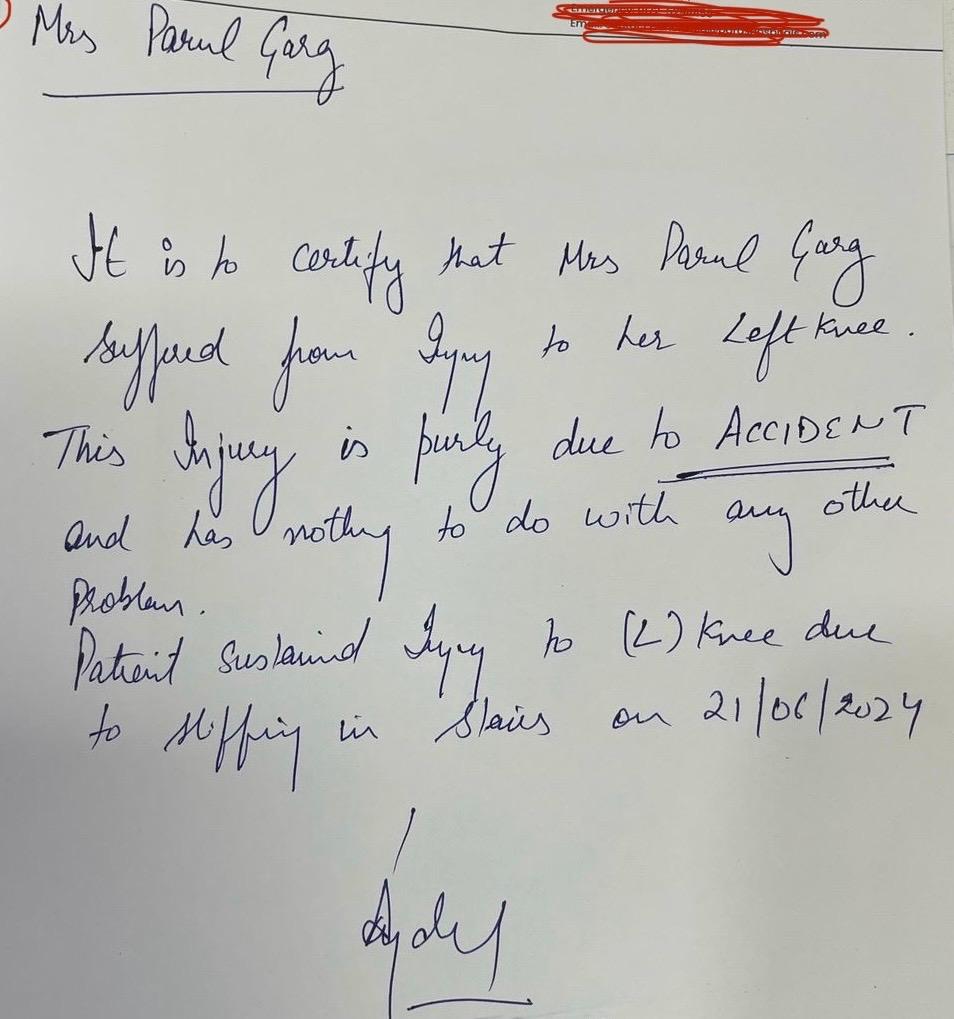 Mrs Parul Garg
It is to certify that Mrs Parul Garg
suffered from Injury to her Left Knee.
This Injury is purly due to ACCIDENT
and has nothing to do with any other
Problem.
Patient sustained Injury to (L) Knee due
to slipping in stairs on 21/06/2024